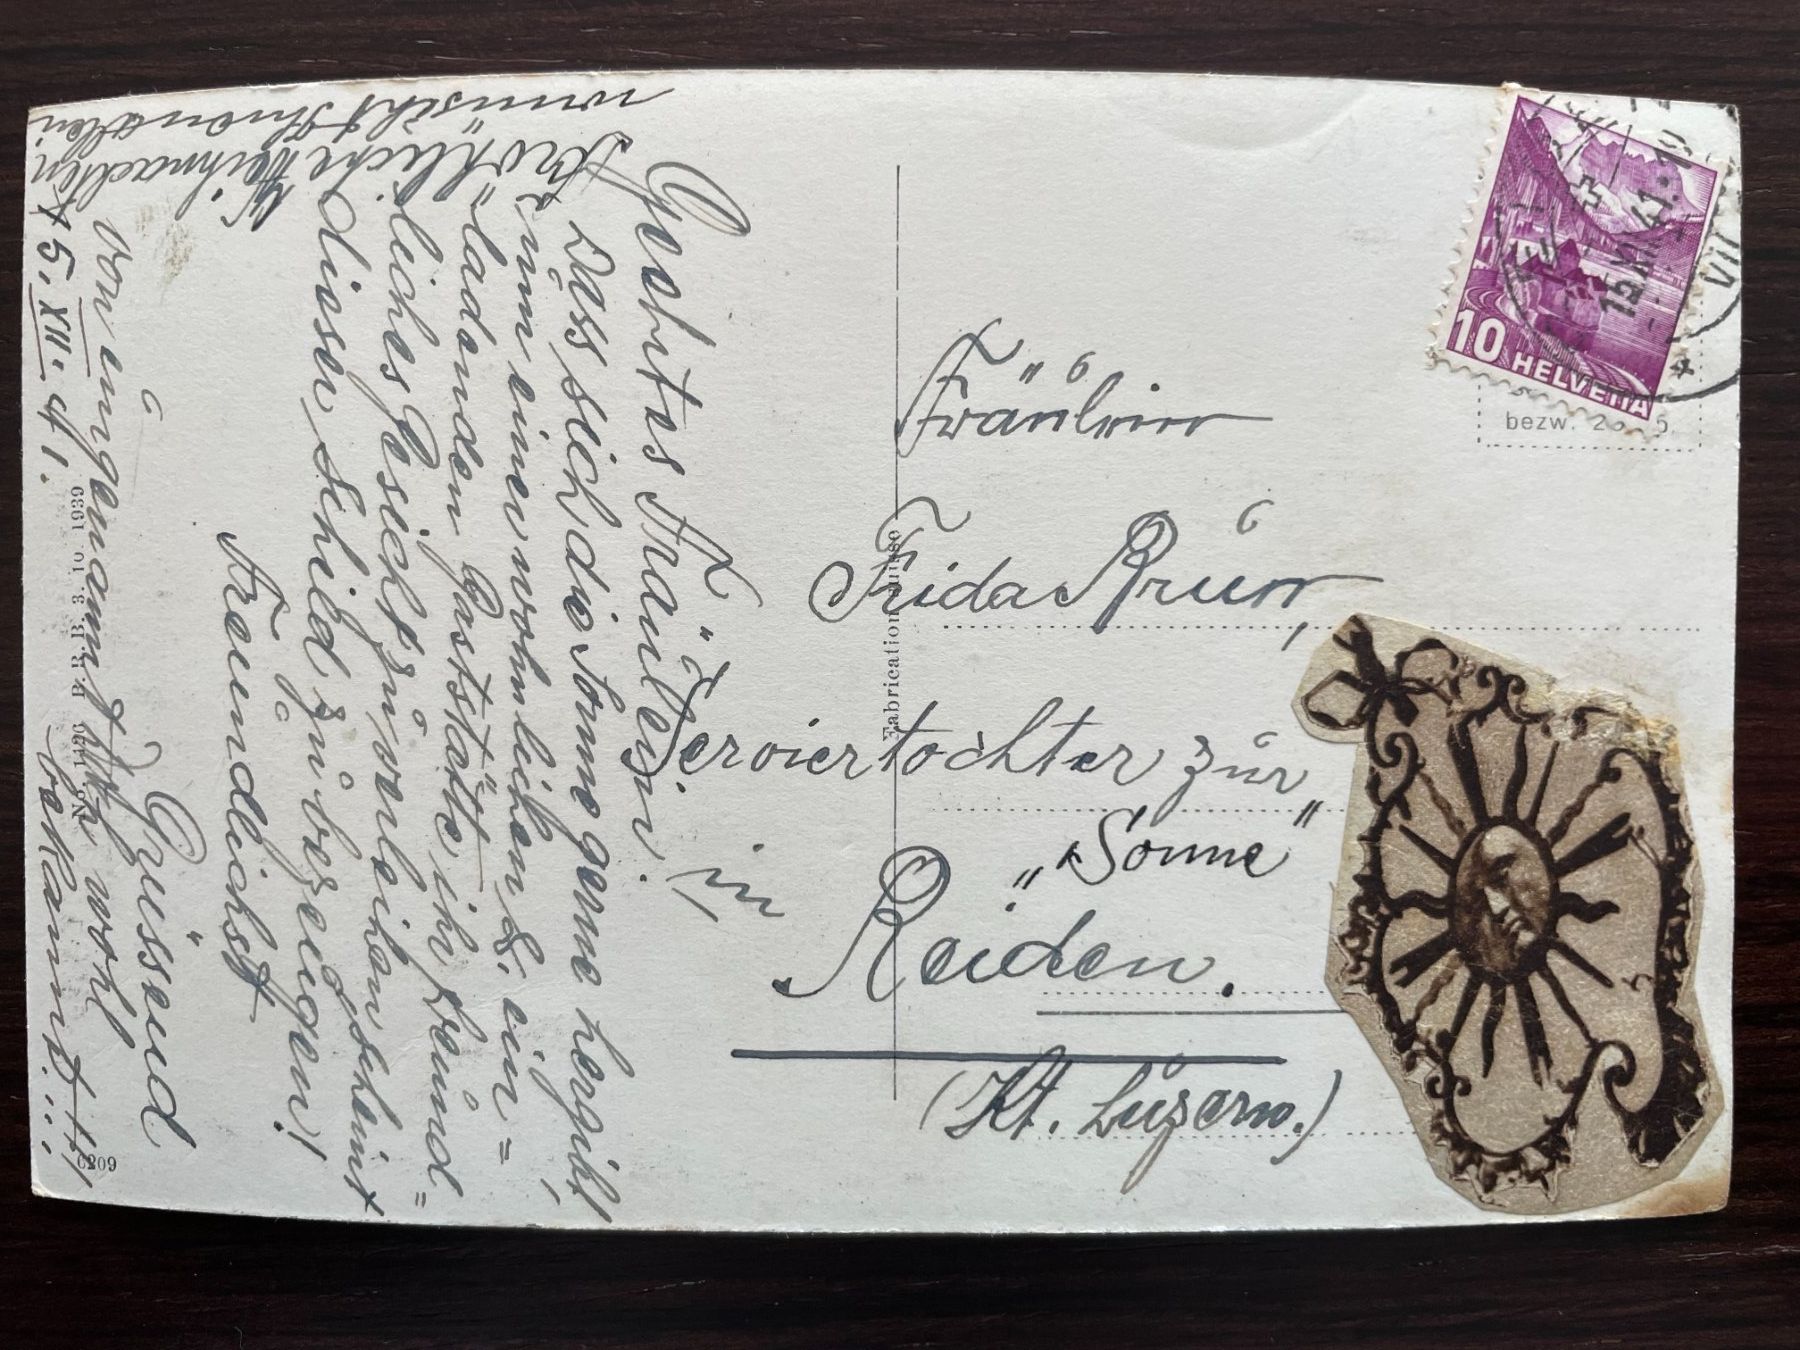 Geehrtes Fräulein.
Dass sich die Sonne gerne hergibt,
um einer wohnlichen & ein=
=ladenden Gaststätte ihr freund=
=liches Gesicht zu verleihen, scheint
dieser Schild zu bezeugen!
Freundlichst
Grüssend
von ungenannt
wohl
bekannt!!...
Fröhliche Weihnachten
wünscht Ihnen allen
15. XII. 41.
No. 1426 B.R.B. 3. 10. 1939
6209
Fabrication suisse
Fräulein
Frida Brun,
Serviertochter zur
„Sonne"
in
Reiden.
(Kt. Luzern.)
10 HELVETIA
15.XII.41.
VII
bezw.